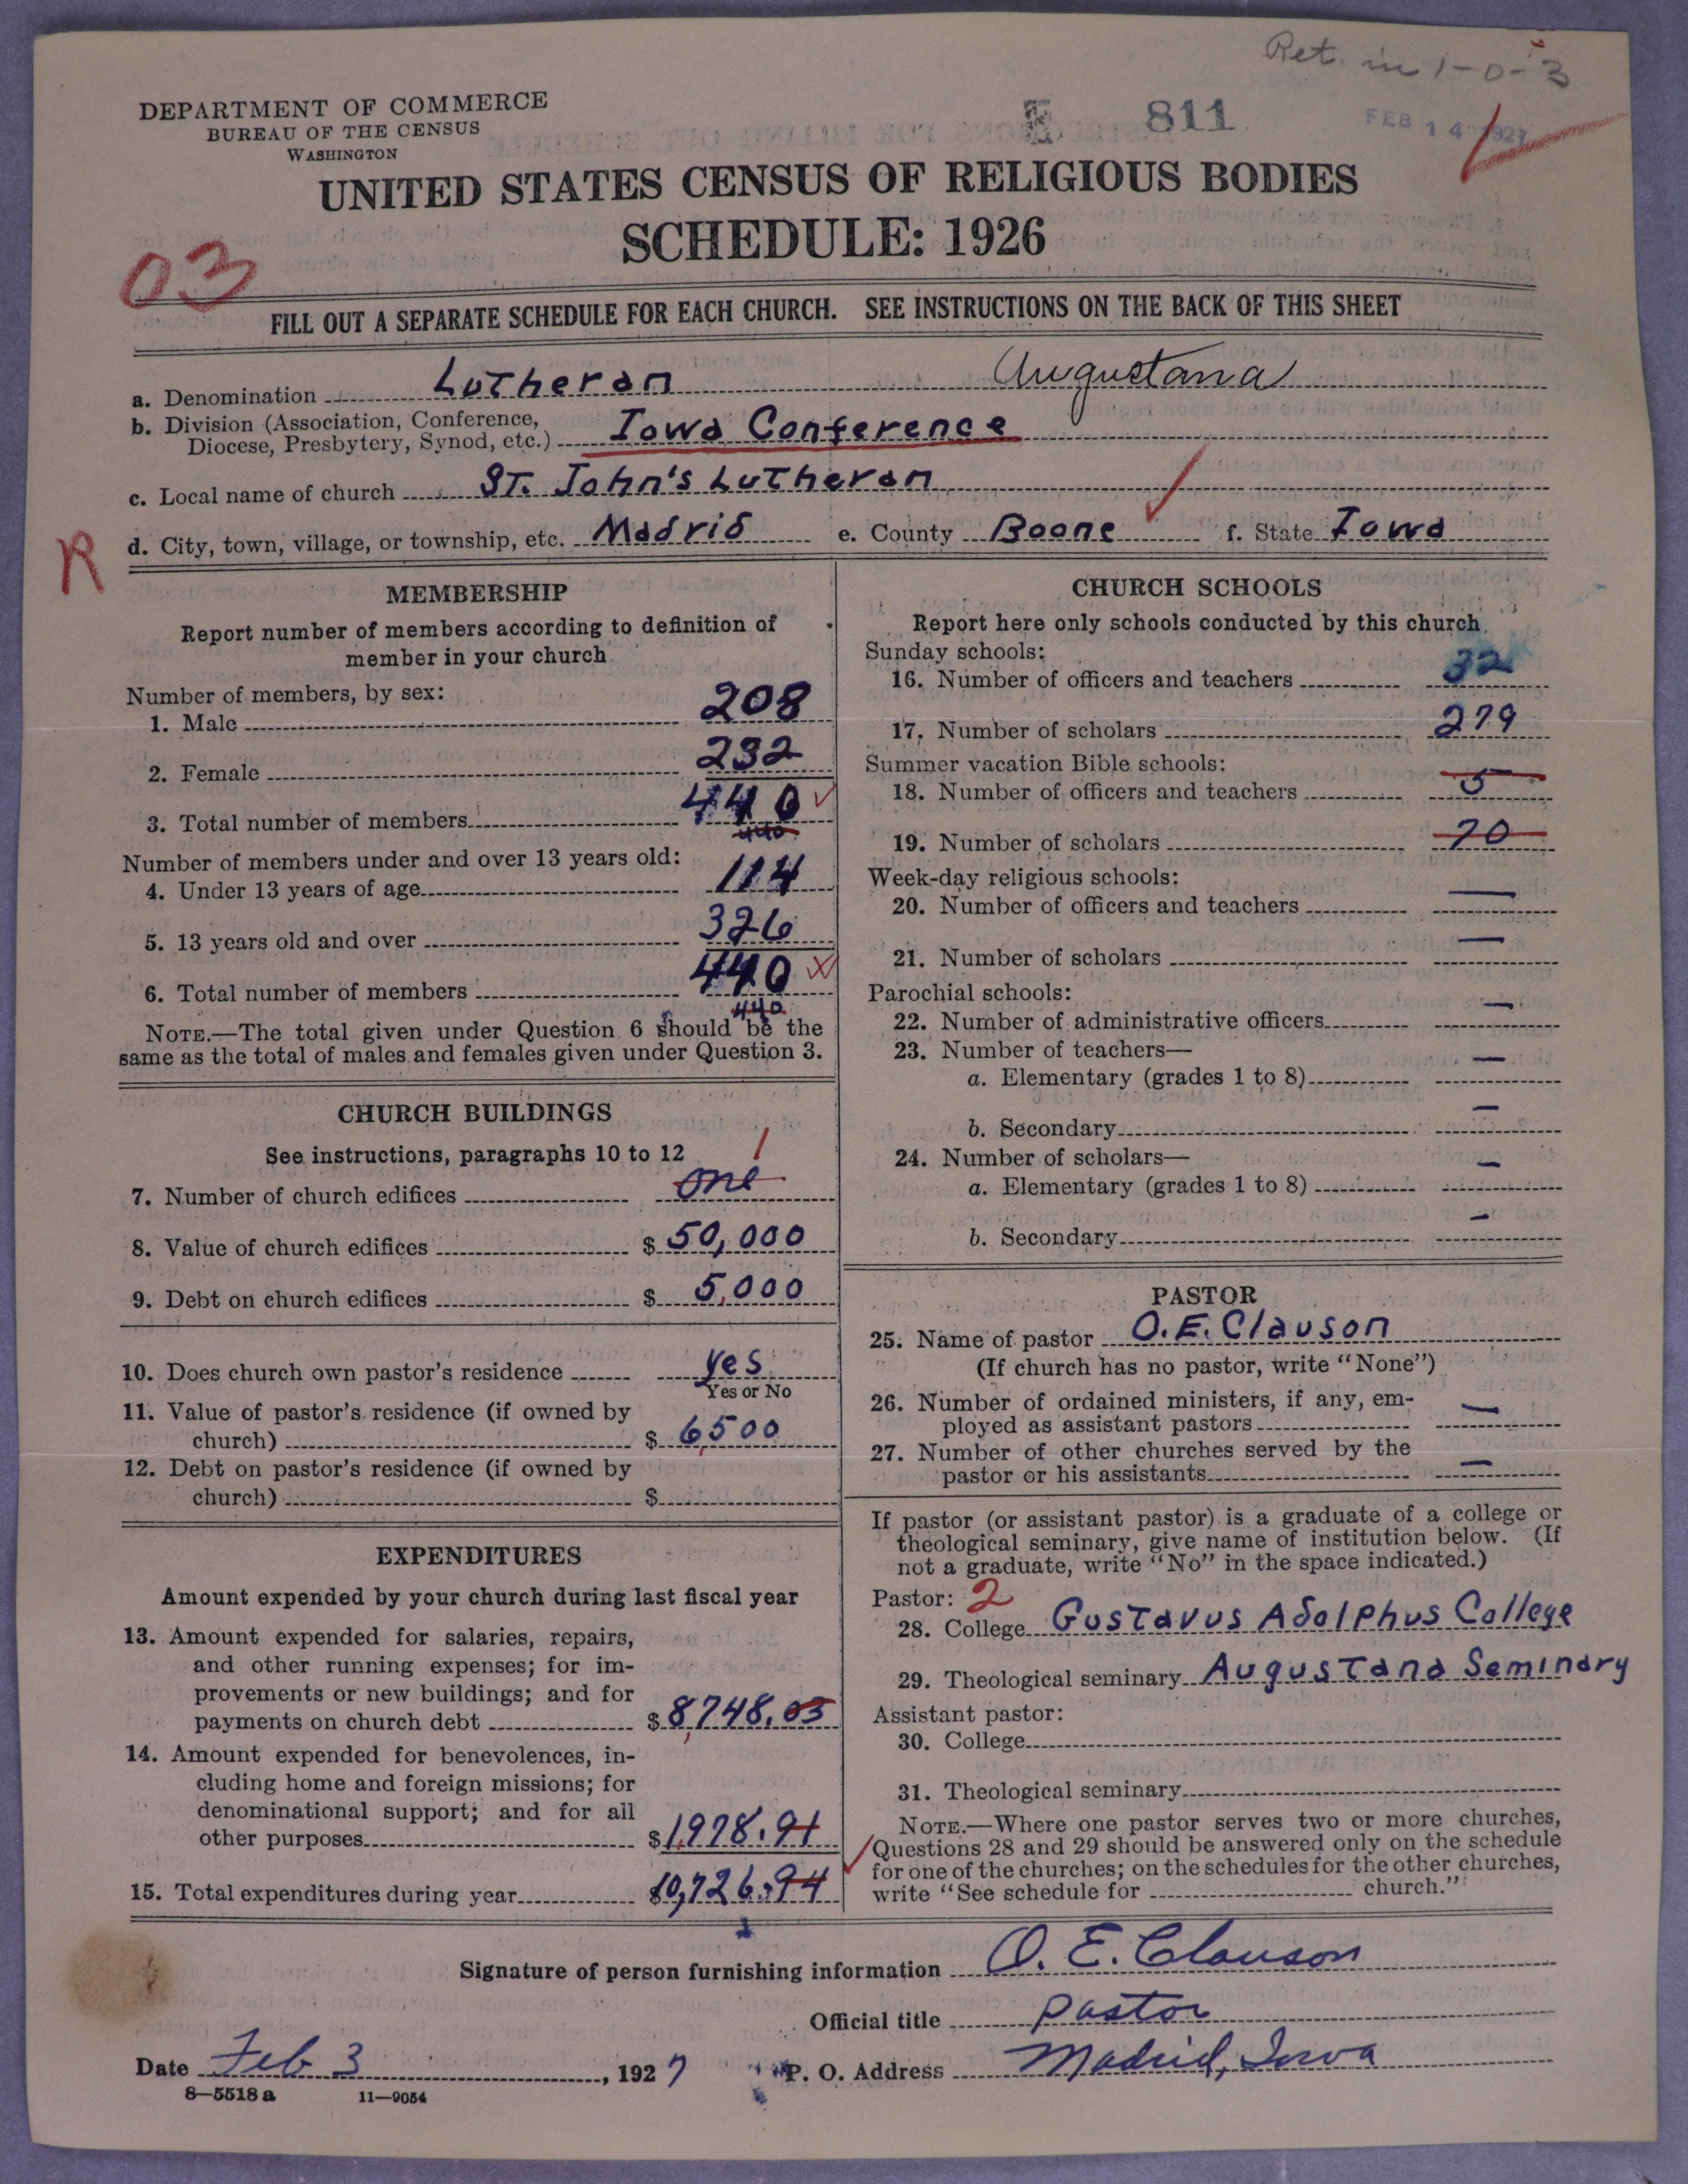 Ret. in 1-0-3
DEPARTMENT OF COMMERCE
BUREAU OF THE CENSUS
WASHINGTON
811
FEB 14 1927
UNITED STATES CENSUS OF RELIGIOUS BODIES
SCHEDULE: 1926
03
FILL OUT A SEPARATE SCHEDULE FOR EACH CHURCH. SEE INSTRUCTIONS ON THE BACK OF THIS SHEET
a. Denomination Lutheran Augustana
b. Division (Association, Conference,
Diocese, Presbytery, Synod, etc.) Iowa Conference
c. Local name of church St. John's Lutheran
R
d. City, town, village, or township, etc. Madrid e. County Boone f. State Iowa
MEMBERSHIP
Report number of members according to definition of
member in your church
Number of members, by sex:
1. Male 208
2. Female 232
3. Total number of members 440
440
Number of members under and over 13 years old:
4. Under 13 years of age 114
5. 13 years old and over 326
6. Total number of members 440
440
NOTE.—The total given under Question 6 should be the
same as the total of males and females given under Question 3.
CHURCH BUILDINGS
See instructions, paragraphs 10 to 12
1
7. Number of church edifices one
8. Value of church edifices $ 50,000
9. Debt on church edifices $ 5,000
10. Does church own pastor's residence yes
Yes or No
11. Value of pastor's residence (if owned by
church) $ 6,500
12. Debt on pastor's residence (if owned by
church) $
EXPENDITURES
Amount expended by your church during last fiscal year
13. Amount expended for salaries, repairs,
and other running expenses; for im-
provements or new buildings; and for
payments on church debt $ 8,748.03
14. Amount expended for benevolences, in-
cluding home and foreign missions; for
denominational support; and for all
other purposes $ 1,978.91
15. Total expenditures during year $10,726.94
CHURCH SCHOOLS
Report here only schools conducted by this church
Sunday schools:
16. Number of officers and teachers 32
17. Number of scholars 279
Summer vacation Bible schools:
18. Number of officers and teachers 5
19. Number of scholars 70
Week-day religious schools:
20. Number of officers and teachers —
21. Number of scholars —
Parochial schools:
22. Number of administrative officers —
23. Number of teachers—
a. Elementary (grades 1 to 8) —
b. Secondary —
24. Number of scholars—
a. Elementary (grades 1 to 8) —
b. Secondary —
PASTOR
25. Name of pastor O. E. Clauson
(If church has no pastor, write "None")
26. Number of ordained ministers, if any, em-
ployed as assistant pastors —
27. Number of other churches served by the
pastor or his assistants —
If pastor (or assistant pastor) is a graduate of a college or
theological seminary, give name of institution below. (If
not a graduate, write "No" in the space indicated.)
Pastor: 2
28. College Gustavus Adolphus College
29. Theological seminary Augustana Seminary
Assistant pastor:
30. College
31. Theological seminary
NOTE.—Where one pastor serves two or more churches,
Questions 28 and 29 should be answered only on the schedule
for one of the churches; on the schedules for the other churches,
write "See schedule for church."
Signature of person furnishing information O. E. Clauson
Official title Pastor
Date Feb 3, 1927 P. O. Address Madrid, Iowa
8—5518 a 11—9054